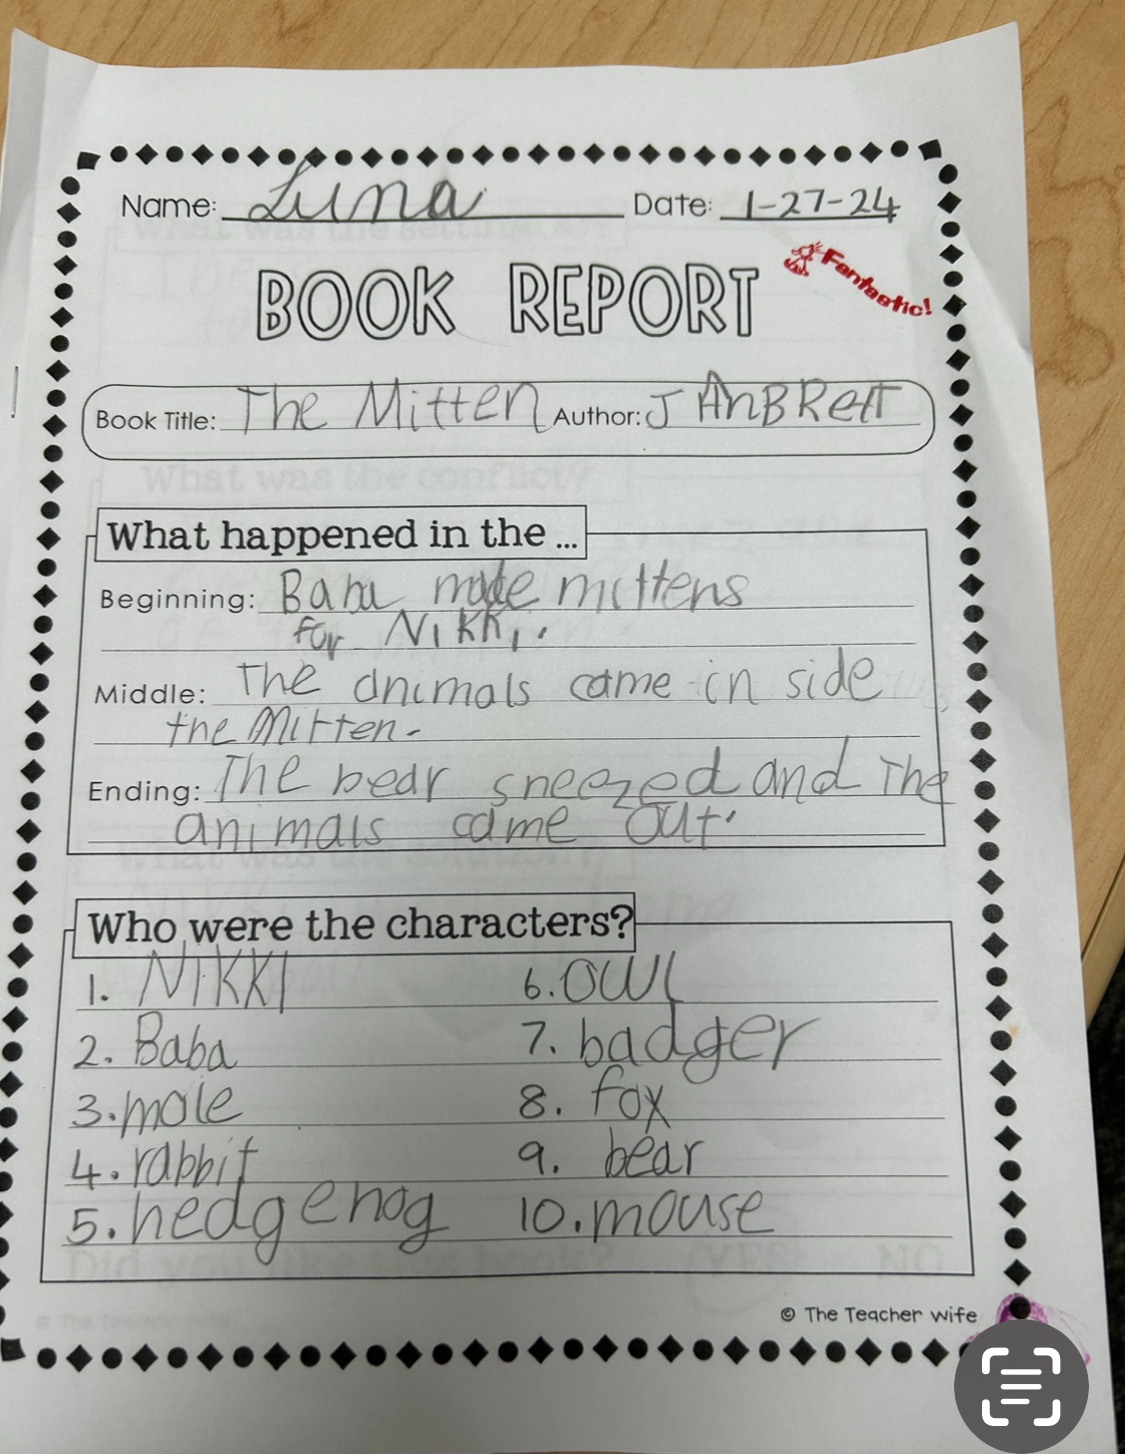 Name: Luna Date: 1-27-24
BOOK REPORT
Fantastic!
Book Title: The Mitten Author: JAnBRett
What happened in the ...
Beginning: Baba made mittens
for Nikki.
Middle: The animals came in side
the Mitten.
Ending: The bear sneezed and The
animals came out.
Who were the characters?
1. NIKKI 6. OWL
2. Baba 7. badger
3. mole 8. fox
4. rabbit 9. bear
5. hedgehog 10. mouse
© The Teacher wife